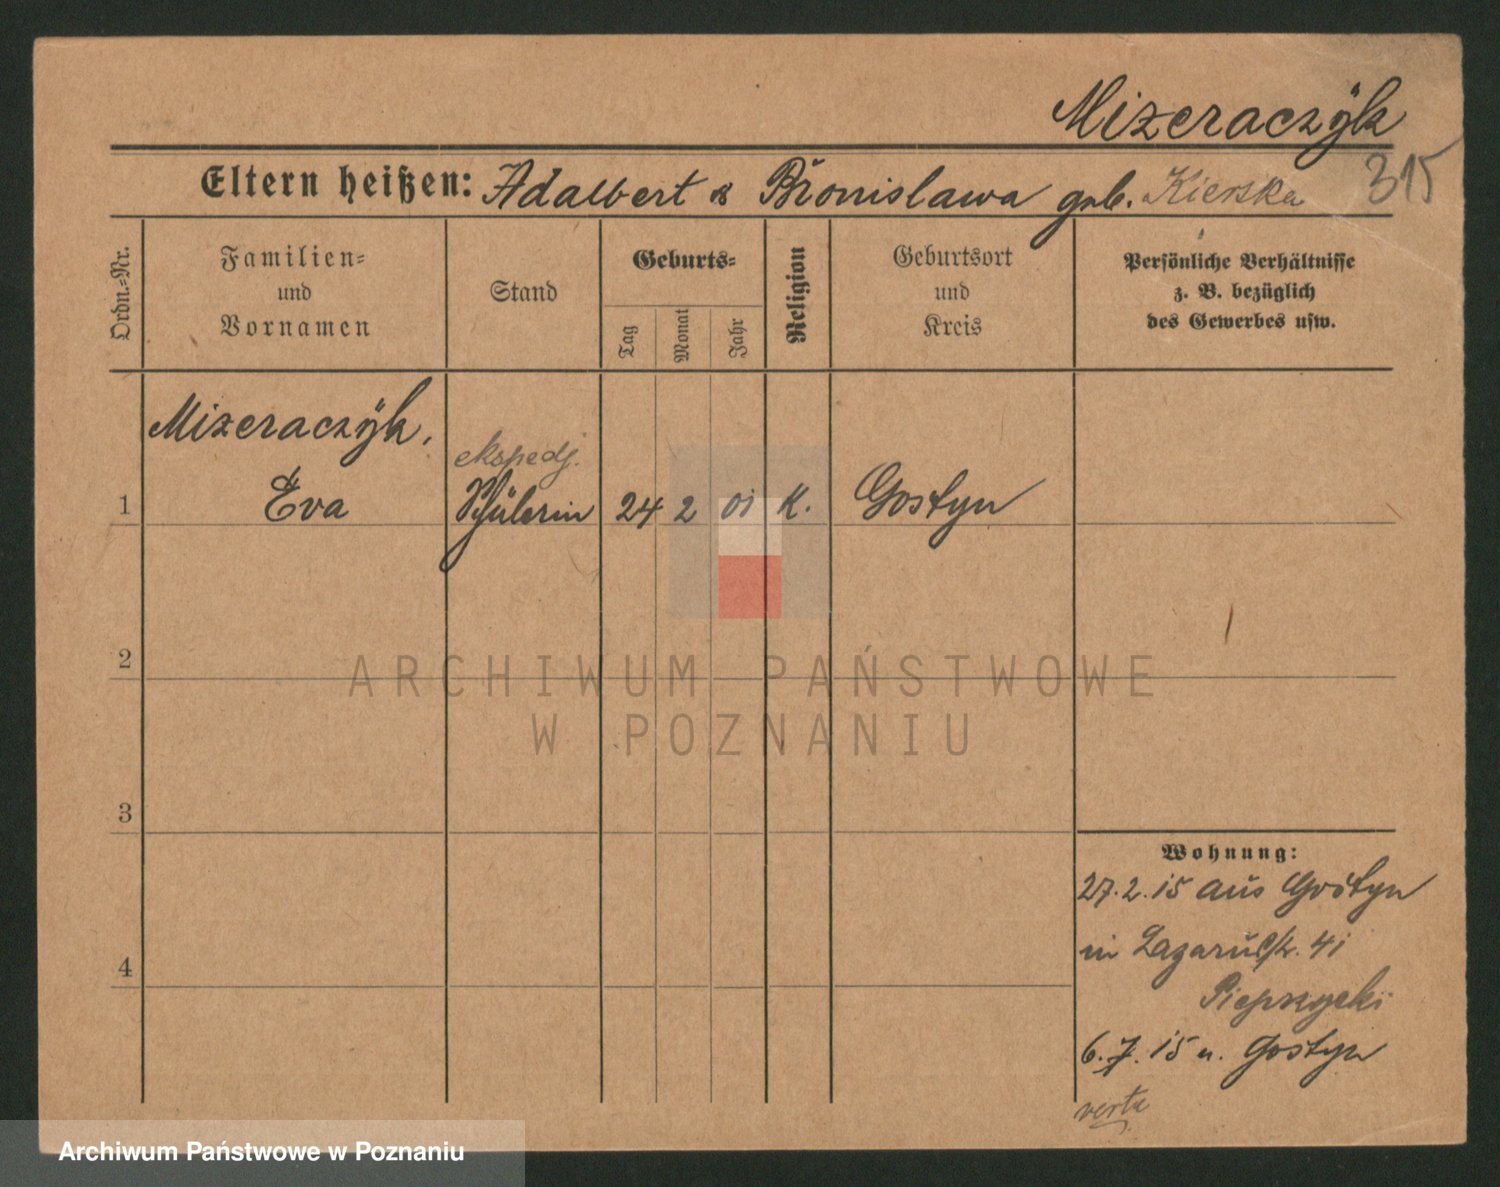 Mizeraczÿk
315
Eltern heißen: Adalbert & Bronislawa geb. Kierska
Ordn.-Nr.
Familien-
und
Vornamen
Stand
Geburts-
Tag
Monat
Jahr
Religion
Geburtsort
und
Kreis
Persönliche Verhältnisse
z. B. bezüglich
des Gewerbes usw.
Mizeraczÿk,
ekspedj.
1 Eva Schülerin 24 2 01 K. Gostyn
2
3
4
Wohnung:
27.2.15 aus Gostyn
in Lazarusstr. 41
6.7.15 n. Gostyn
verte
ARCHIWUM PAŃSTWOWE
W POZNANIU
Archiwum Państwowe w Poznaniu